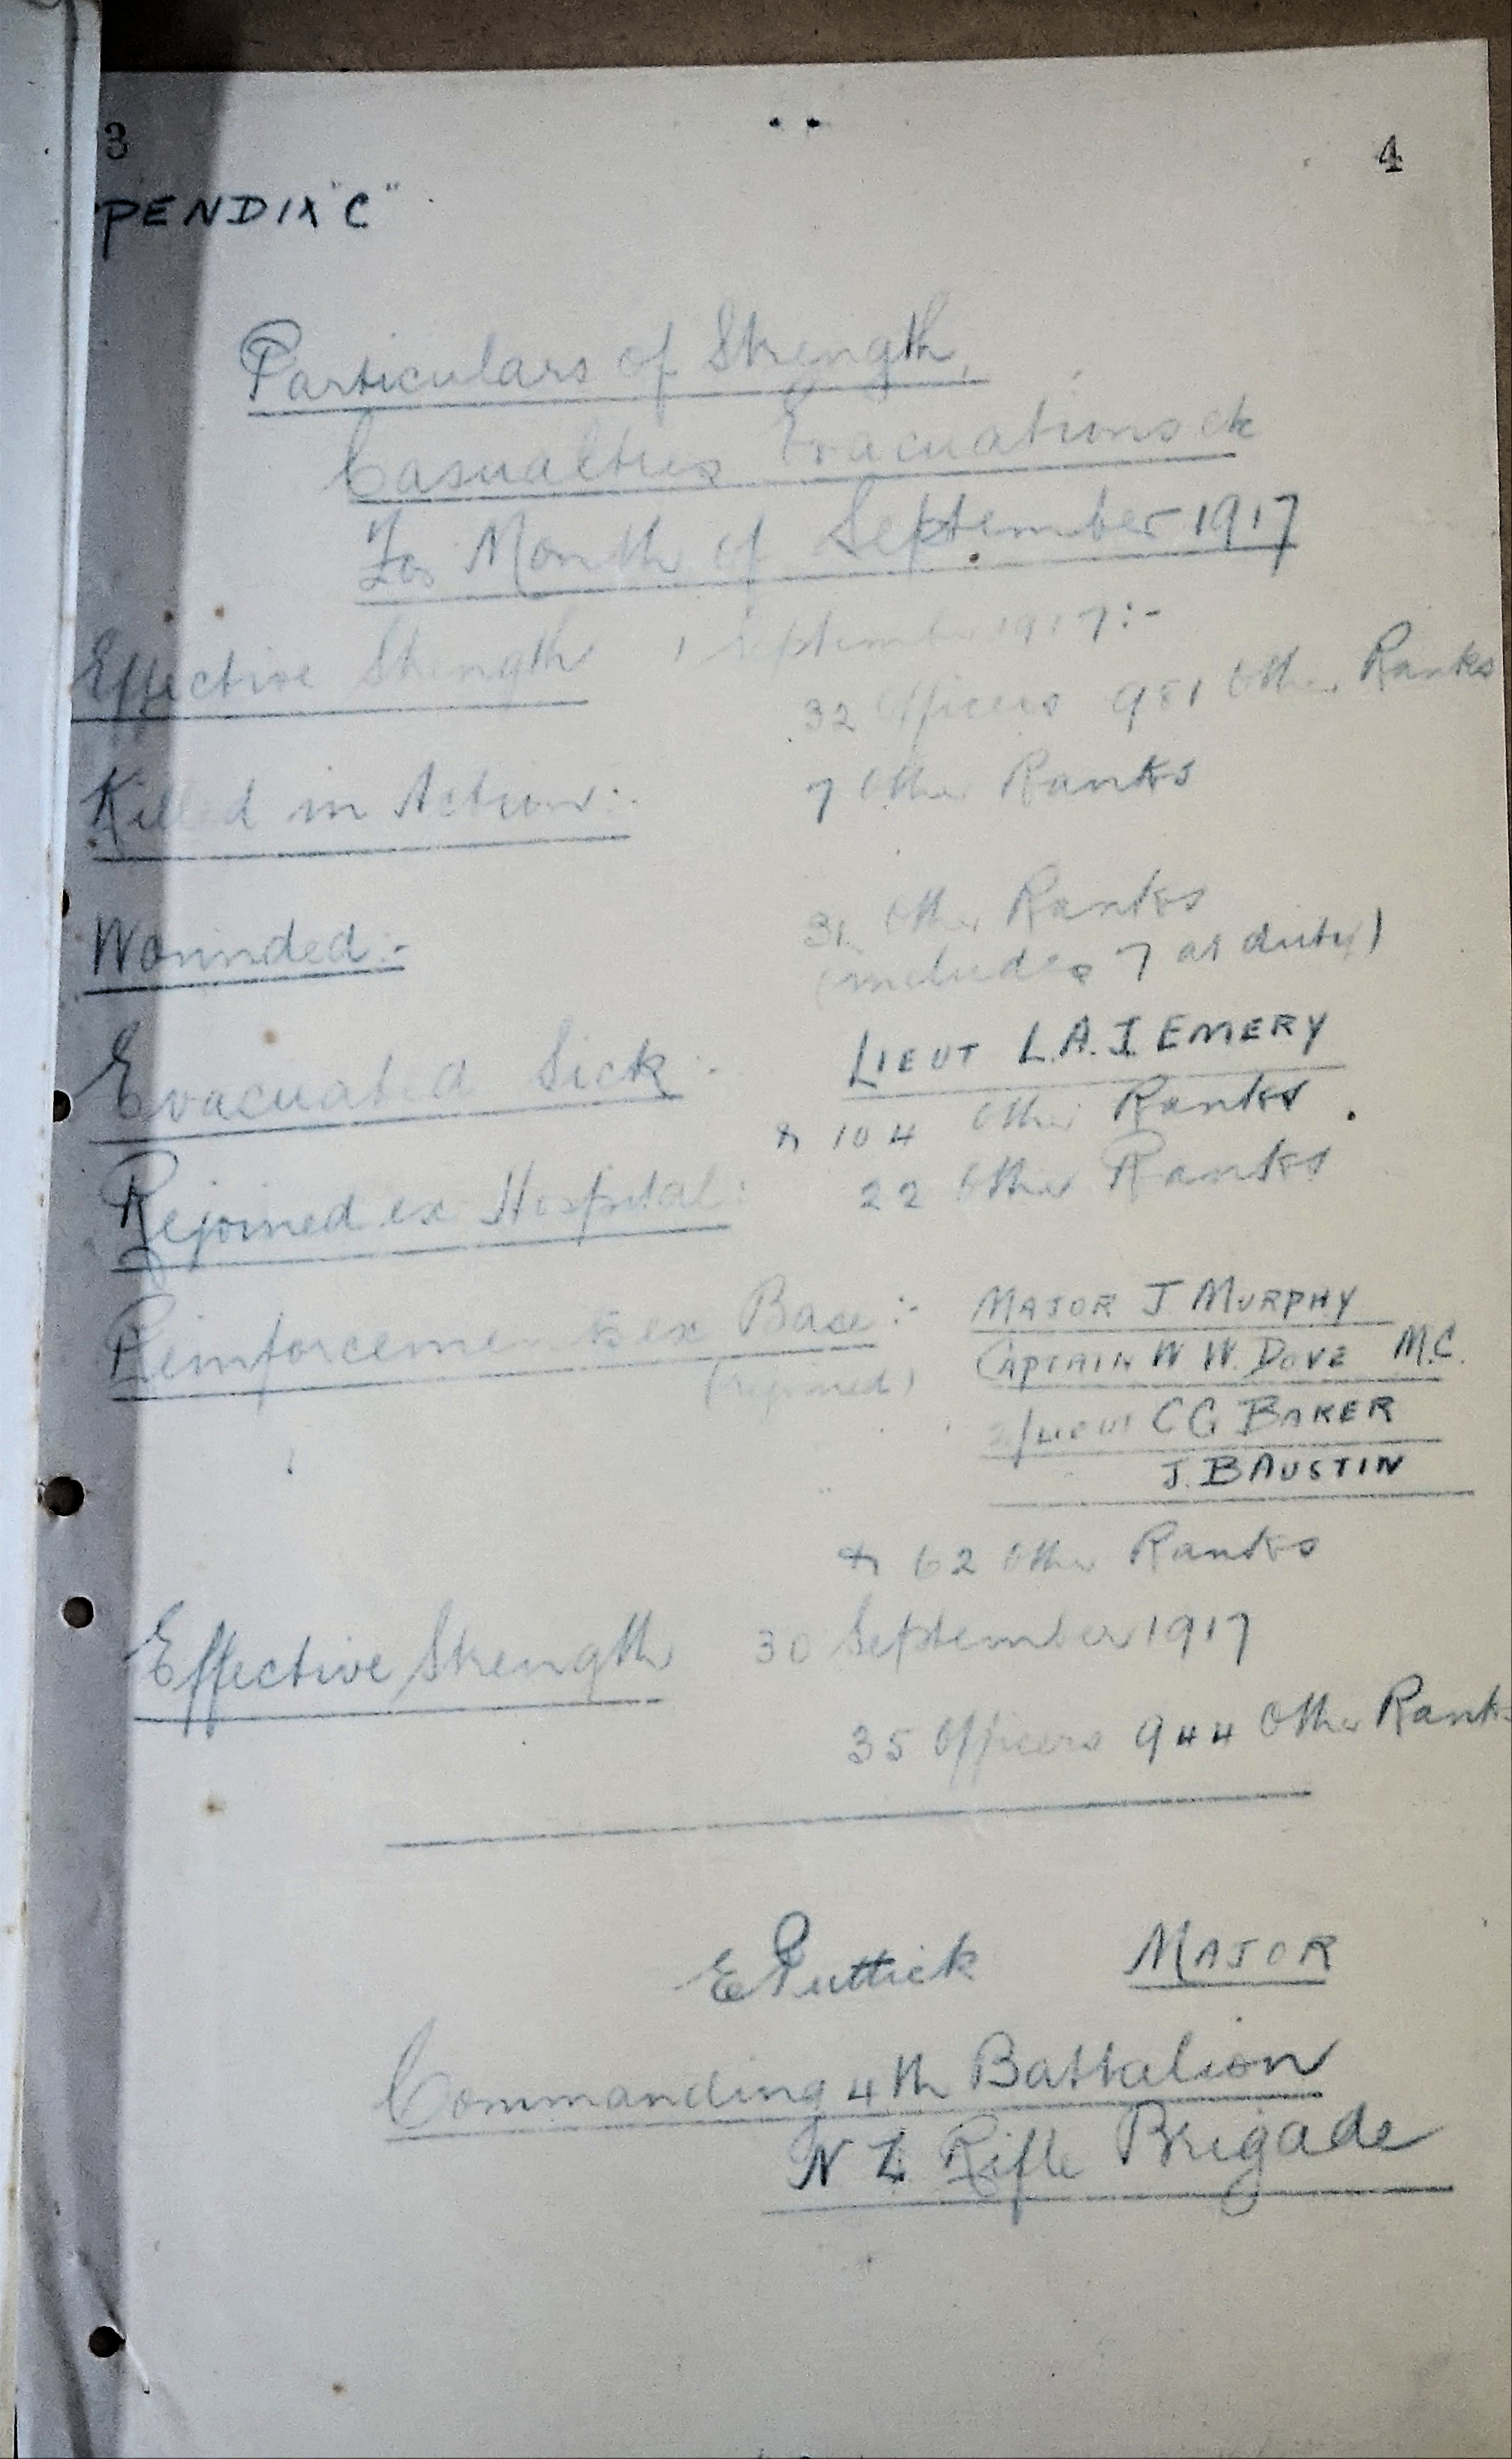 3
4
PENDIX "C"
Particulars of Strength,
Casualties Evacuations etc
For Month of September 1917
Effective Strength 1 September 1917:-
32 Officers 981 Other Ranks
Killed in Action:- 7 Other Ranks
Wounded:- 31 Other Ranks
(includes 7 at duty)
Evacuated Sick:- LIEUT L.A.I. EMERY
& 104 Other Ranks.
Rejoined ex Hospital: 22 Other Ranks
Reinforcements ex Base:- MAJOR J MURPHY
(rejoined) CAPTAIN W. W. DOVE M.C.
2/Lieut C G BAKER
" J. B AUSTIN
& 62 Other Ranks
Effective Strength 30 September 1917
35 Officers 944 Other Ranks
E Puttick MAJOR
Commanding 4th Battalion
N Z Rifle Brigade